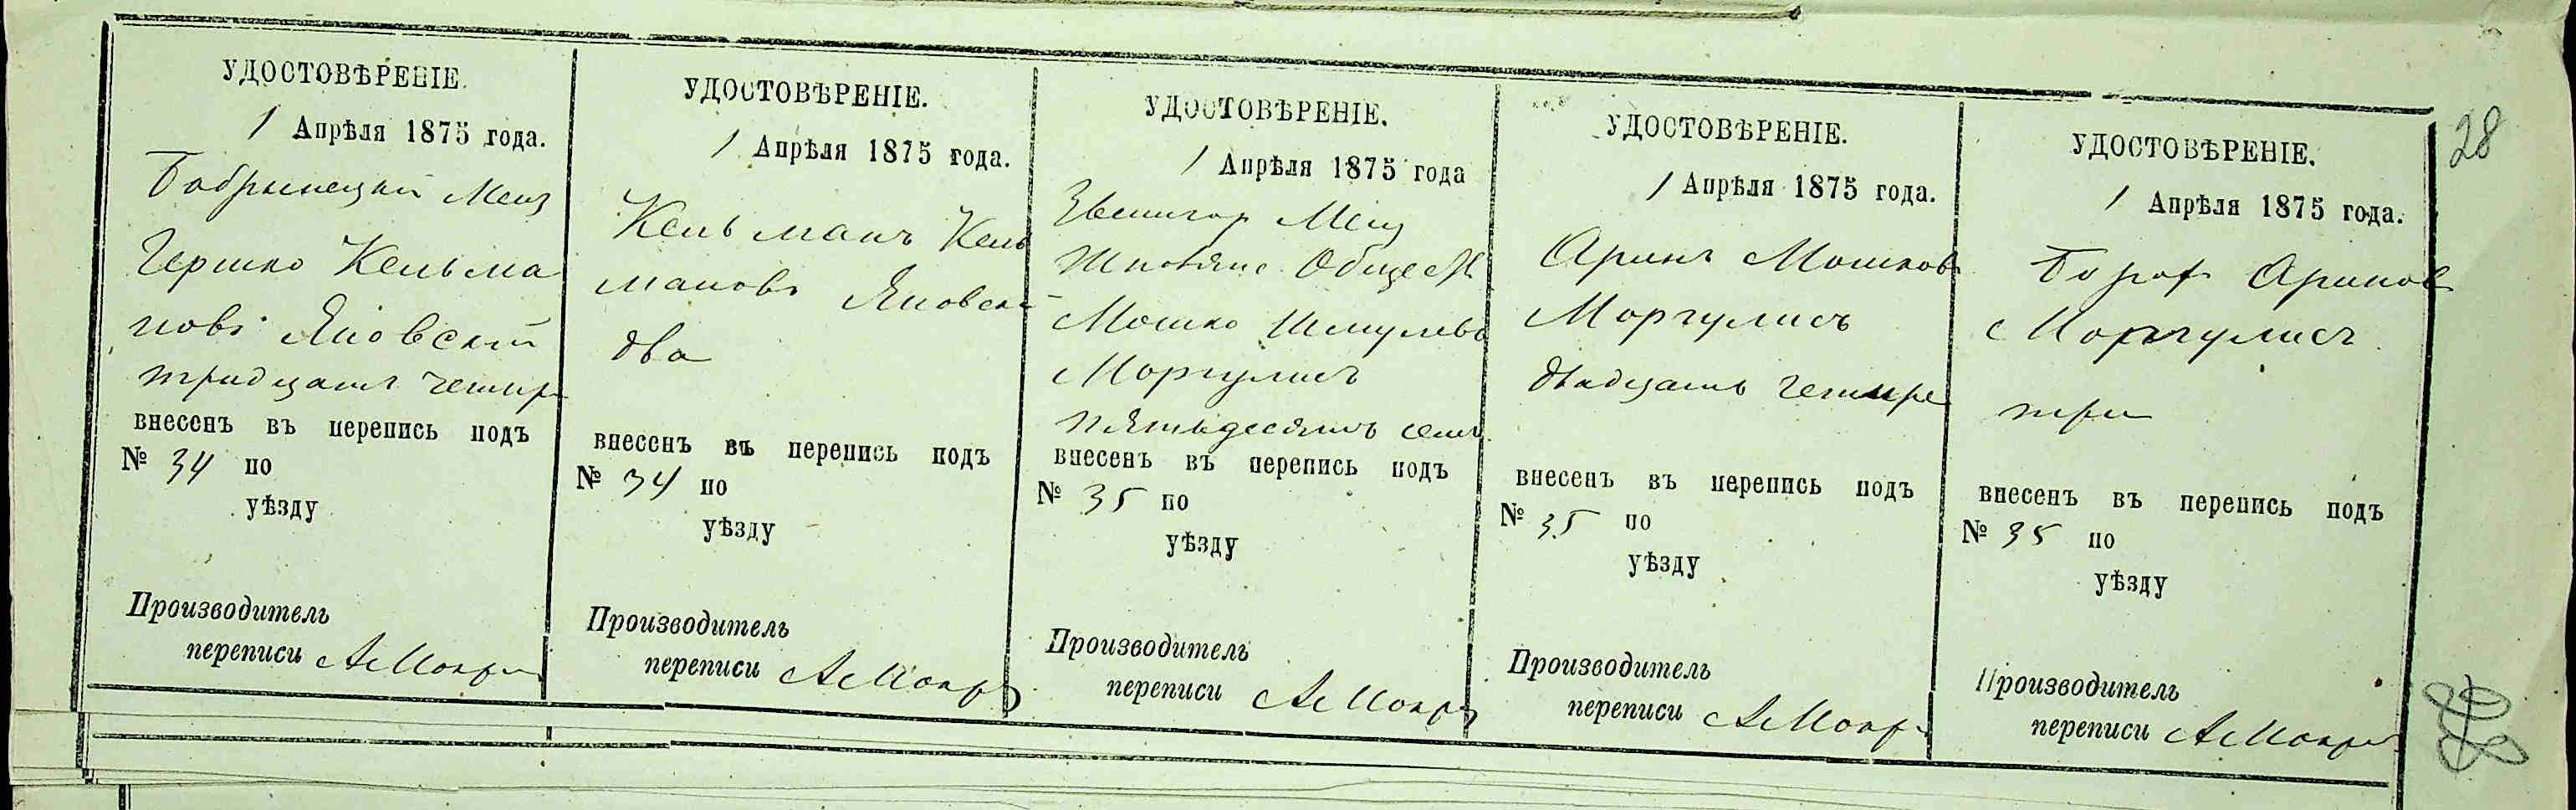 УДОСТОВѢРЕНІЕ.
1 Апрѣля 1875 года.
Бобрынецкий Мещ
Гершко Кельма
новъ Яновский
тридцать четыр
внесенъ въ перепись подъ
№ 34 по
уѣзду
Производитель
переписи
УДОСТОВѢРЕНІЕ.
1 Апрѣля 1875 года.
Кельманъ Кель
мановъ Яновски
два
внесенъ въ перепись подъ
№ 34 по
уѣзду
Производитель
переписи
УДОСТОВѢРЕНІЕ.
1 Апрѣля 1875 года
Звенигор Мещ
Общест
Мошко Шмулевъ
Моргулисъ
пятьдесятъ семь
внесенъ въ перепись подъ
№ 35 по
уѣзду
Производитель
переписи
УДОСТОВѢРЕНІЕ.
1 Апрѣля 1875 года.
Аринъ Мошковъ
Моргулисъ
двадцать четыре
внесенъ въ перепись подъ
№ 35 по
уѣзду
Производитель
переписи
УДОСТОВѢРЕНІЕ.
1 Апрѣля 1875 года.
Борох Аринов
Моргулисъ
три
внесенъ въ перепись подъ
№ 35 по
уѣзду
Производитель
переписи
28